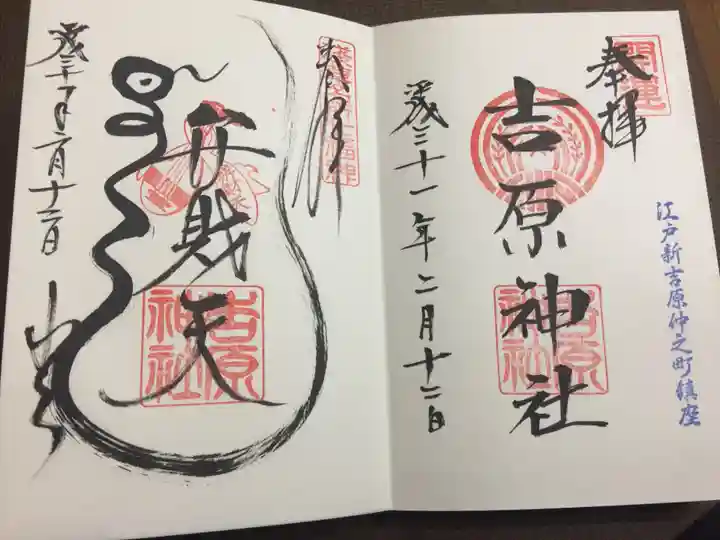 開運
奉拝
江戸新吉原仲之町鎮座
吉原神社
吉原神社
平成三十一年二月十二日
奉拝
弁財天
吉原神社
平成三十一年二月十二日